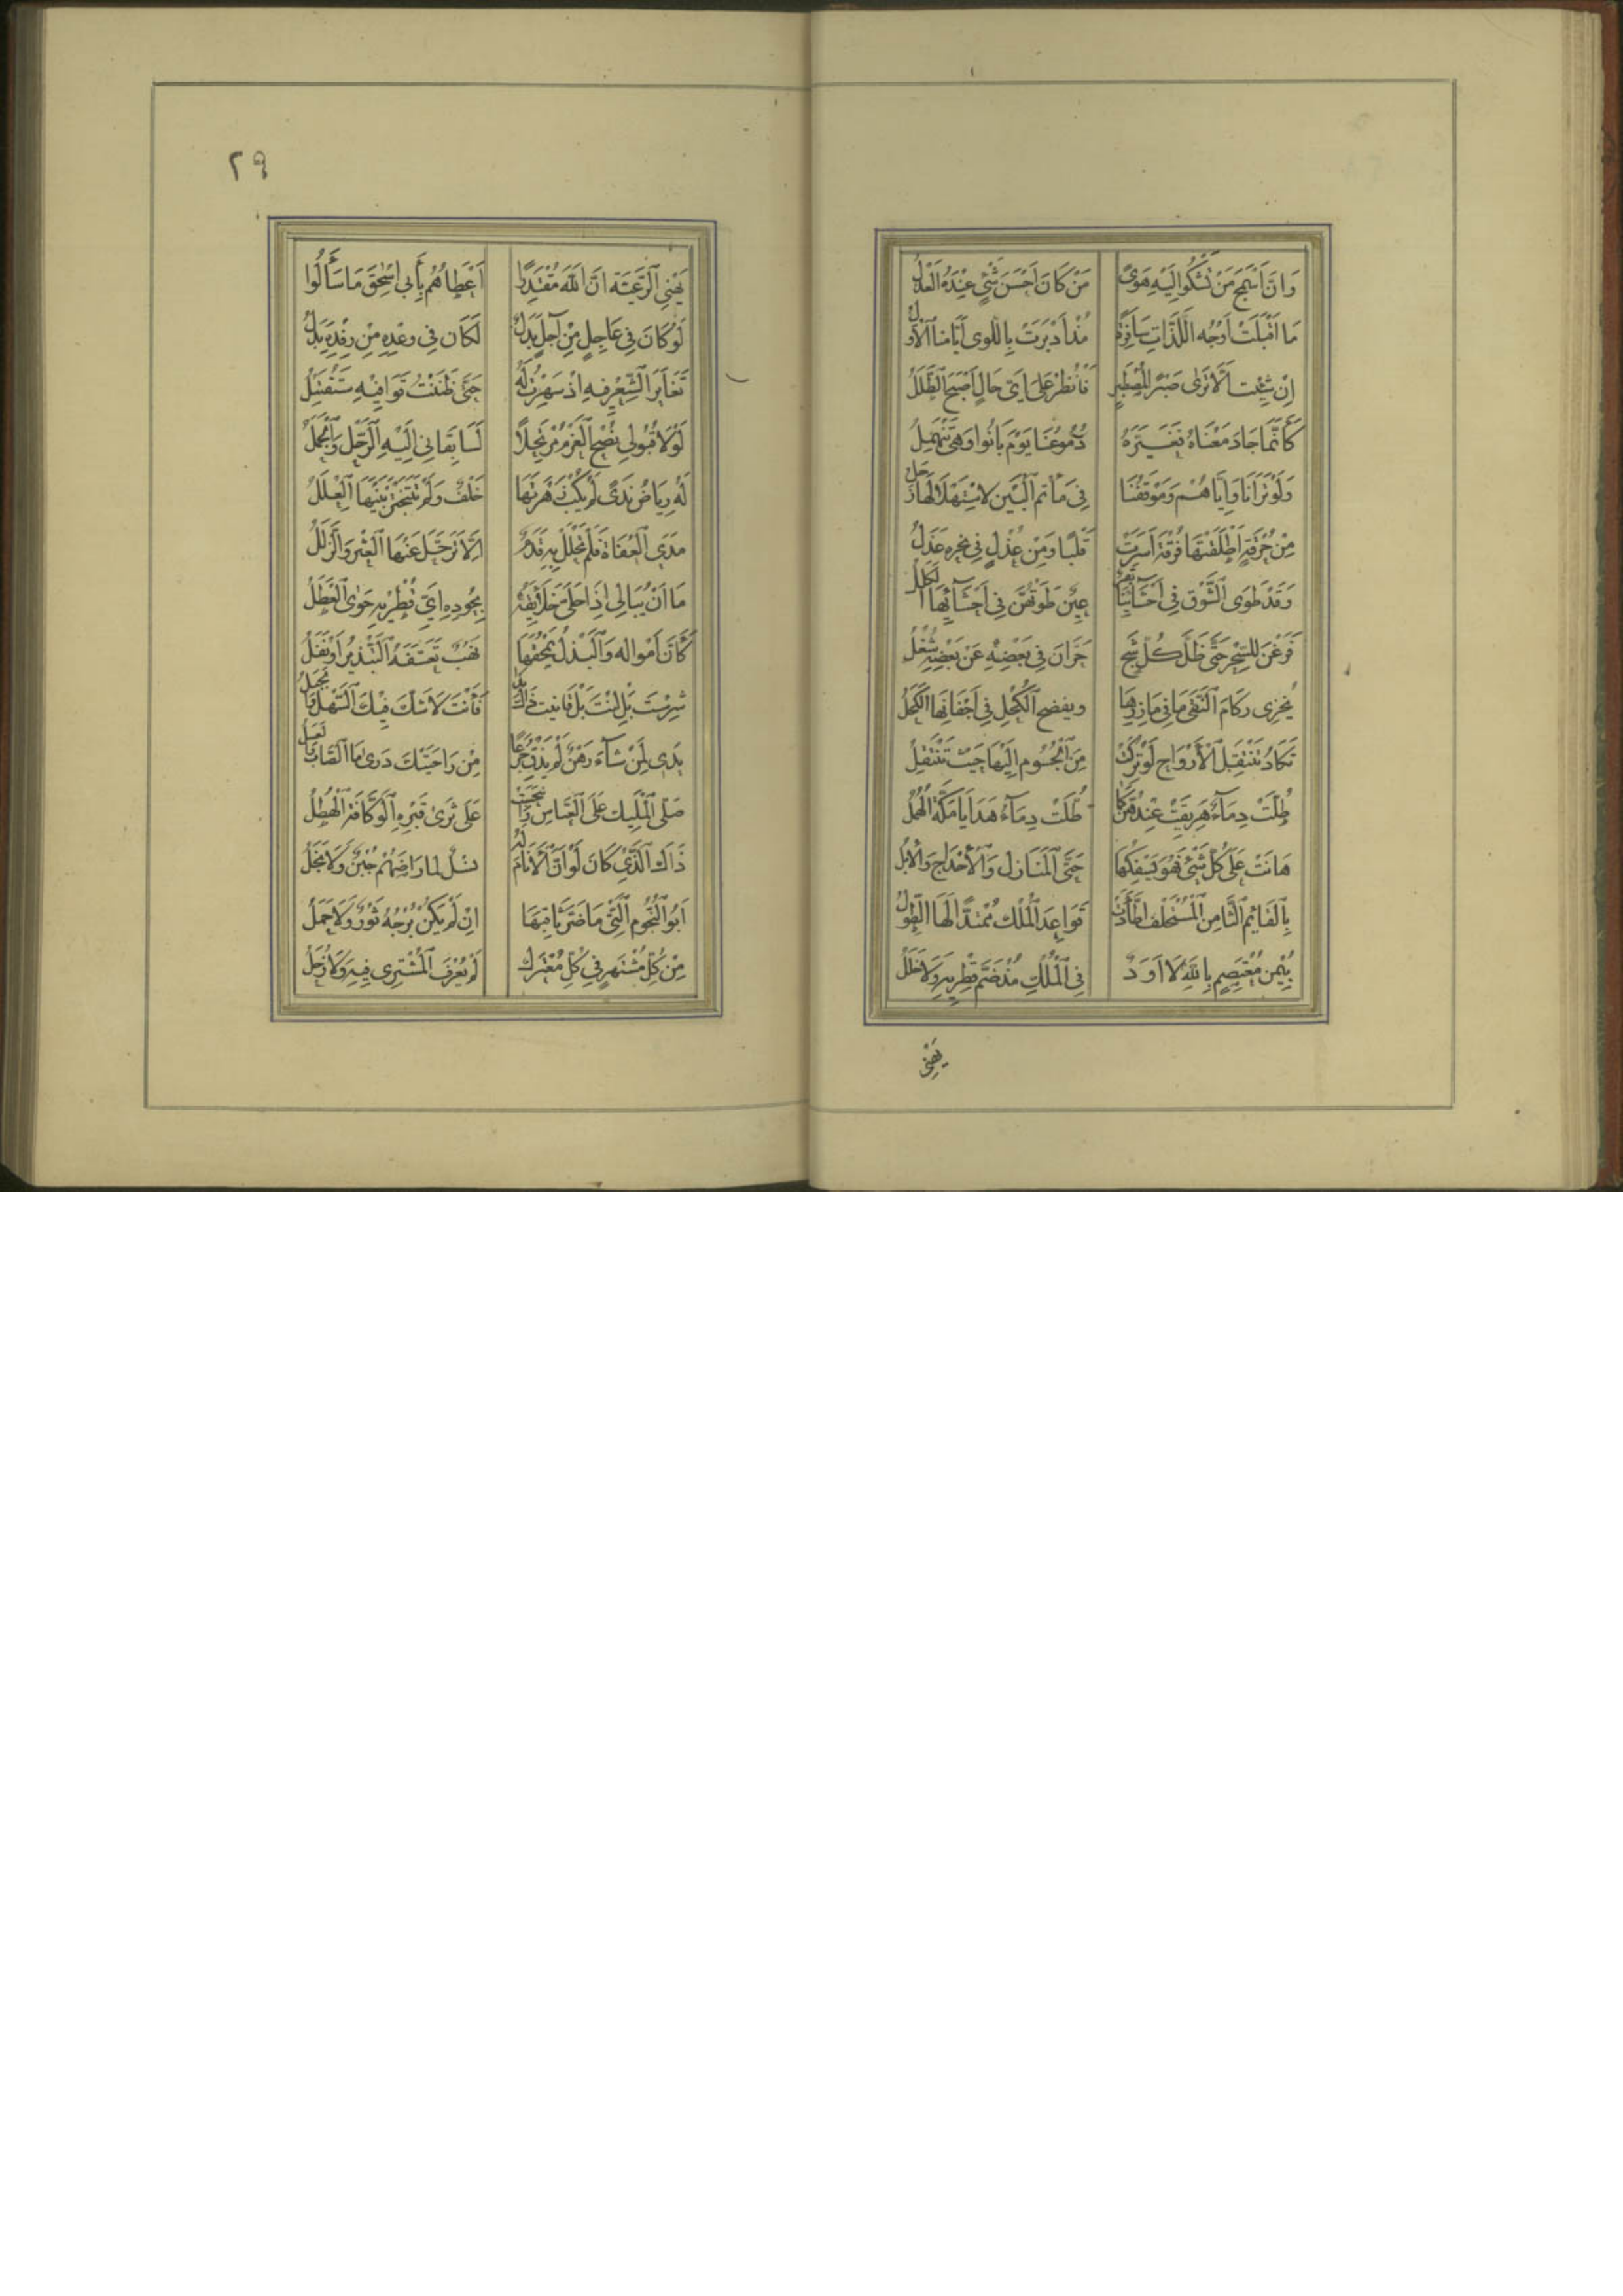 وَاِنَّ اَسْمَجَ مَنْ تَشْكُوا اِلَيْهِ هَوىً مَنْ كَانَ اَحْسَنَ شَيْءٍ عِنْدَهُ الْعَذَلُ
مَا اَقْبَلَتْ اَوْجُه اللَّذَّاتِ سَافِرَةً مُذْ اَدْبَرَتْ بِاللّوى اَيَّامُنَا الْاُوَلُ
اِنْ شِئْتَ اَلَّا تَرَى صَبْرًا لِمُصْطَبِرٍ فَانْظُرْ عَلى اَيِّ حَالٍ اَصْبَحَ الطَّلَلُ
كَأَنَّمَا جَادَ مَغْنَاهُ فَغَيَّرَهُ دُمُوعُنَا يَوْمَ بَانُوا وَهْيَ تَنْهَمِلُ
وَلَوْ تَرَانَا وَاِيَّاهُمْ وَمَوْقِفَنَا فِي مَأْتَمِ الْبَيْنِ لِاسْتِهْلَالِهَا زَجَلُ
مِنْ حُرْقَةٍ اَطْلَقَتْهَا فُرْقَةٌ اَسَرَتْ قَلْبًا وَمِنْ عُذْلٍ فِي نَحْرِهِ عَذَلُ
وَقَدْ طَوَى الشَّوْقَ فِي اَحْشَائِنَا بَقَرٌ عِينٌ طَوَتْهُنَّ فِي اَحْشَآئِهَا الْكِلَلُ
فَرَغْنَ لِلسِّحْرِ حَتَّى ظَلَّ كُلُّ شَجٍ حَرَّانَ فِي بَعْضِهِ عَنْ بَعْضِهِ شُغُلُ
يُخْزِى رُكَامَ النَّقَى مَا فِي مَازِرِهَا وَيَفْضَحُ الْكُحْلَ فِي اَجْفَانِهَا الْكَحَلُ
تَكَادُ تَنْتَقِلُ الْأَرْوَاحُ لَوْ تُرِكَتْ مِنَ الْجُسُومِ اِلَيْهَا حَيْثُ تَنْتَقِلُ
طُلَّتْ دِمَآءٌ هُرِيقَتْ عِنْدَهُنَّ كَمَا طُلَّتْ دِمَآءُ هَدَايَا مَكَّةَ الْهُمَلُ
هَانَتْ عَلَى كُلِّ شَيْءٍ فَهْوَ يَسْفِكُهَا حَتَّى الْمَنَازِلُ وَالْأَحْدَاجُ وَالْاِبِلُ
بِالْقَائِمِ الثَّامِنِ الْمُسْتَخْلَفِ اطَّأَدَتْ قَوَاعِدُ الْمُلْكِ مُمْتَدًّا لَهَا الطِّوَلُ
بِيُمْنِ مُعْتَصِمٍ بِاللهِ لَا اَوَدٌ فِي الْمُلْكِ مُذْ ضَمَّ قُطْرَيْهِ وَلَا خَلَلُ
يَهْنِي
٢٩
يَهْنِي الرَّعِيَّةَ اَنَّ اللهَ مُقْتَدِرًا اَعْطَاهُمُ بِأَبِي اِسْحٰقَ مَا سَأَلُوا
لَوْ كَانَ فِي عَاجِلٍ مِنْ آجِلٍ بَدَلٌ لَكَانَ فِي وَعْدِهِ مِنْ رِفْدِهِ بَدَلُ
تَغَايَرَ الشِّعْرُ فِيهِ اِذْ سَهِرْتُ لَهُ حَتَّى ظَنَنْتُ قَوَافِيهِ سَتَقْتَتِلُ
لَوْلَا قُبُولِي نُصْحَ الْعَزْمِ مُرْتَحِلًا لَسَابَقَانِي اِلَيْهِ الرَّحْلُ وَالْجَمَلُ
لَهُ رِيَاضُ نَدًى لَمْ يُكْبِ زَهْرَتَهَا خَلْفٌ وَلَمْ تَتَبَخْتَرْ بَيْنَهَا الْعِلَلُ
مَدَى الْعُفَاةِ فَلَمْ تَحْلُلْ بِهِ قَدَمٌ اِلَّا تَرَحَّلَ عَنْهَا الْعَثْرُ وَالزَّلَلُ
مَا اَنْ يُبَالِي اِذَا حَلَّى خَلَائِقَهُ بِجُودِهِ اَيُّ قُطْرَيْهِ حَوَى الْعَطَلُ
كَأَنَّ اَمْوَالَهُ وَالْبَذْلُ يَمْحَقُهَا نَهْبٌ تَعَسَّفَهُ التَّبْذِيرُ اَوْ نَفَلُ
شَرِسْتَ بَلْ لِنْتَ بَلْ قَانَيْتَ ذَاكَ بِذَا فَأَنْتَ لَا شَكَّ فِيكَ السَّهْلُ وَالْجَبَلُ
يَدِي لِمَنْ شَآءَ رَهْنٌ لَمْ يَذُقْ جُرَعًا مِنْ رَاحَتَيْكَ دَرَى مَا الصَّابُ وَالْعَسَلُ
صَلَّى الْمَلِيكُ عَلَى الْعَبَّاسِ وَانْبَجَسَتْ عَلَى ثَرَى قَبْرِهِ الْوَكَّافَةُ الْهُطُلُ
ذَاكَ الَّذِي كَانَ لَوْ اَنَّ الْأَنَامَ لَهُ نَسْلٌ لَمَا رَاضَهُمْ جُبْنٌ وَلَا بَخَلُ
اَبُو النُّجُومِ الَّتِي مَا ضَرَّ ثَاقِبَهَا اِنْ لَمْ يَكُنْ بُرْجُهُ ثَوْرٌ وَلَا حَمَلُ
مِنْ كُلِّ مُشْتَهِرٍ فِي كُلِّ مُعْتَرَكٍ لَمْ يُعْرَفِ الْمُشْتَرِى فِيهِ وَلَا زُحَلُ